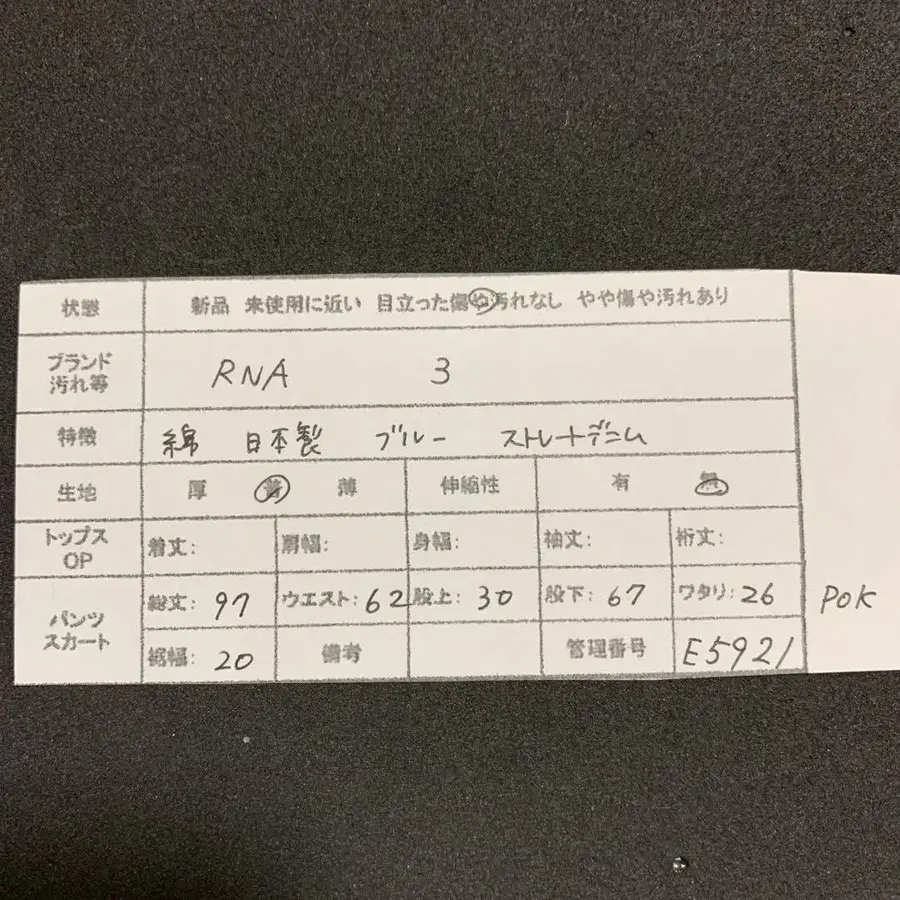 状態 新品 未使用に近い 目立った傷や汚れなし やや傷や汚れあり
ブランド
汚れ等 RNA 3
特徴 綿 日本製 ブルー ストレートデニム
生地 厚 普 薄 伸縮性 有 無
トップス
OP 着丈: 肩幅: 身幅: 袖丈: 裄丈:
パンツ
スカート 総丈: 97 ウエスト: 62 股上: 30 股下: 67 ワタリ: 26
裾幅: 20 備考 管理番号 E5921
POK